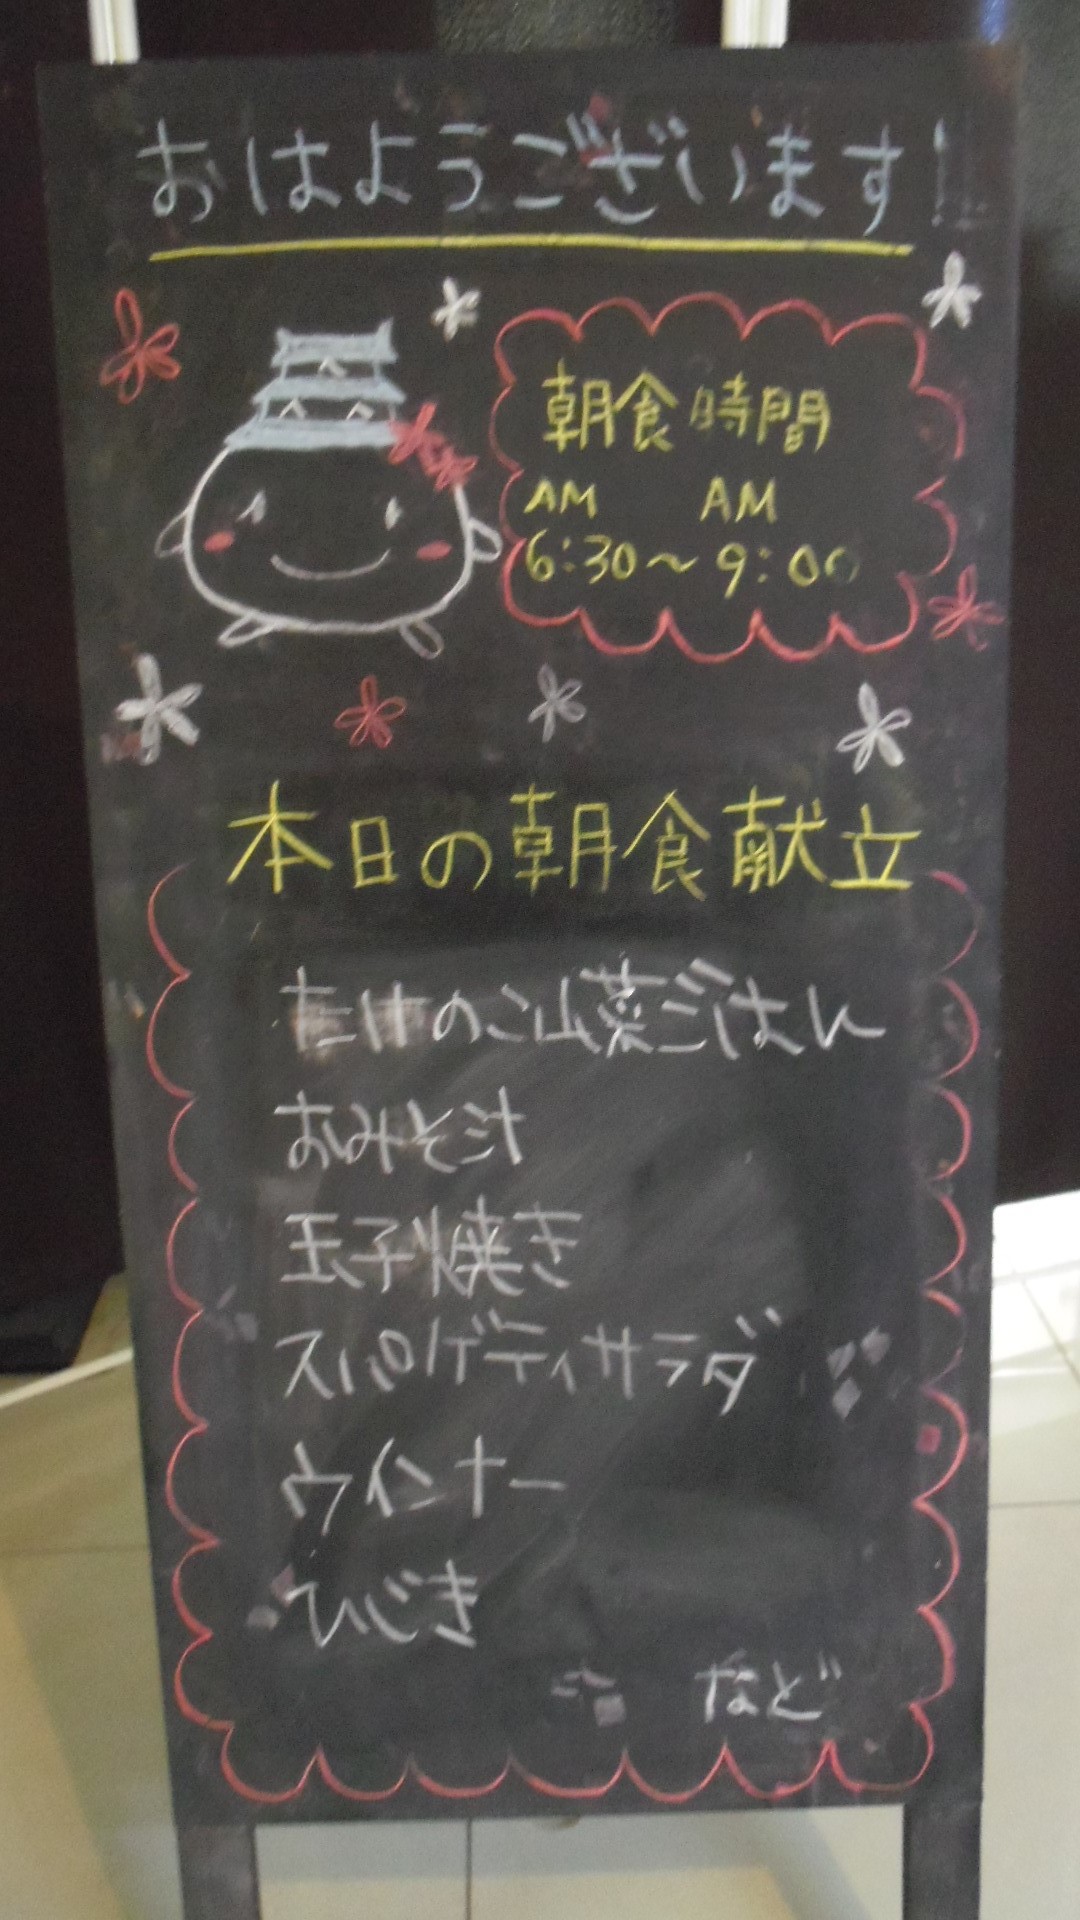 おはようございます!
朝食時間
AM AM
6:30～9:00
本日の朝食献立
たけのこ山菜ごはん
おみそ汁
玉子焼き
スパゲティサラダ
ウインナー
ひじき
など